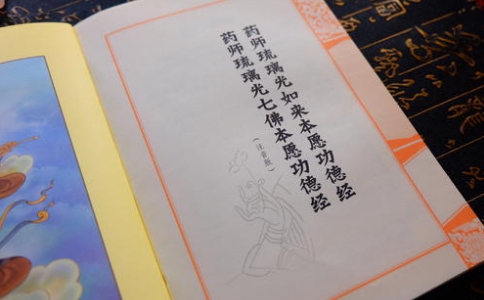 药师琉璃光如来本愿功德经
药师琉璃光七佛本愿功德经
(注音版)